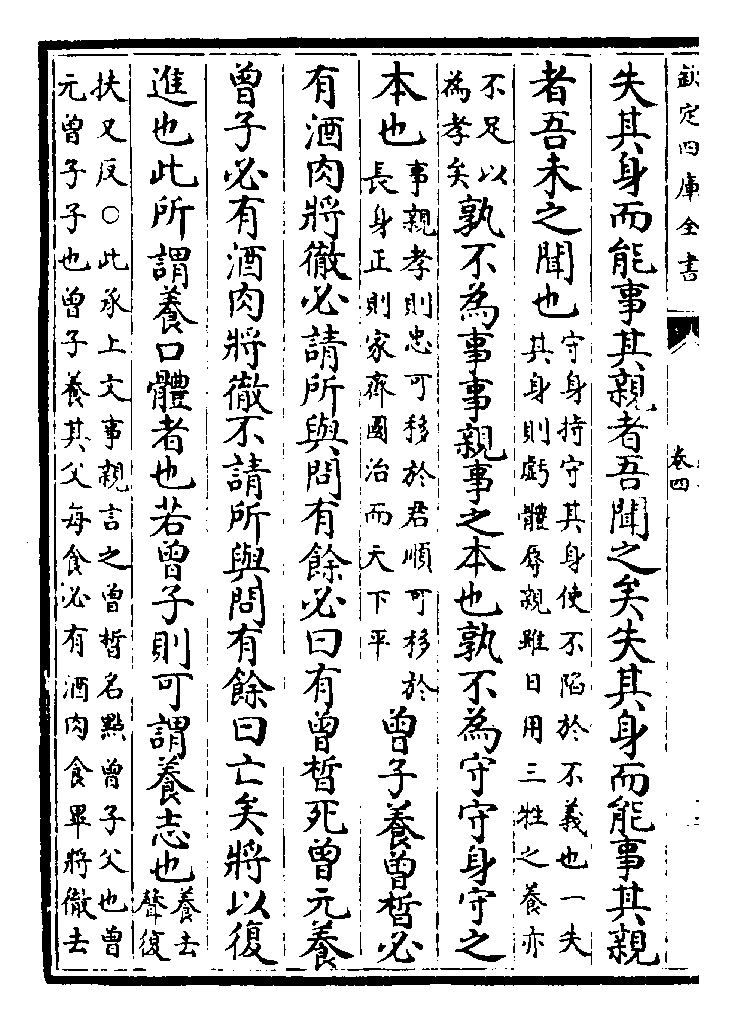 欽定四庫全書
卷四
失其身而能事其親者吾聞之矣失其身而能事其親
者吾未之聞也守身持守其身使不陷於不義也一失
其身則虧體辱親雖日用三牲之養亦
不足以
為孝矣孰不為事事親事之本也孰不為守守身守之
本也事親孝則忠可移於君順可移於
長身正則家齊國治而天下平曾子養曾晳必
有酒肉將徹必請所與問有餘必曰有曾晳死曾元養
曾子必有酒肉將徹不請所與問有餘曰亡矣將以復
進也此所謂養口體者也若曾子則可謂養志也養去
聲復
扶又反○此承上文事親言之曾晳名點曾子父也曾
元曾子子也曾子養其父每食必有酒肉食畢將徹去